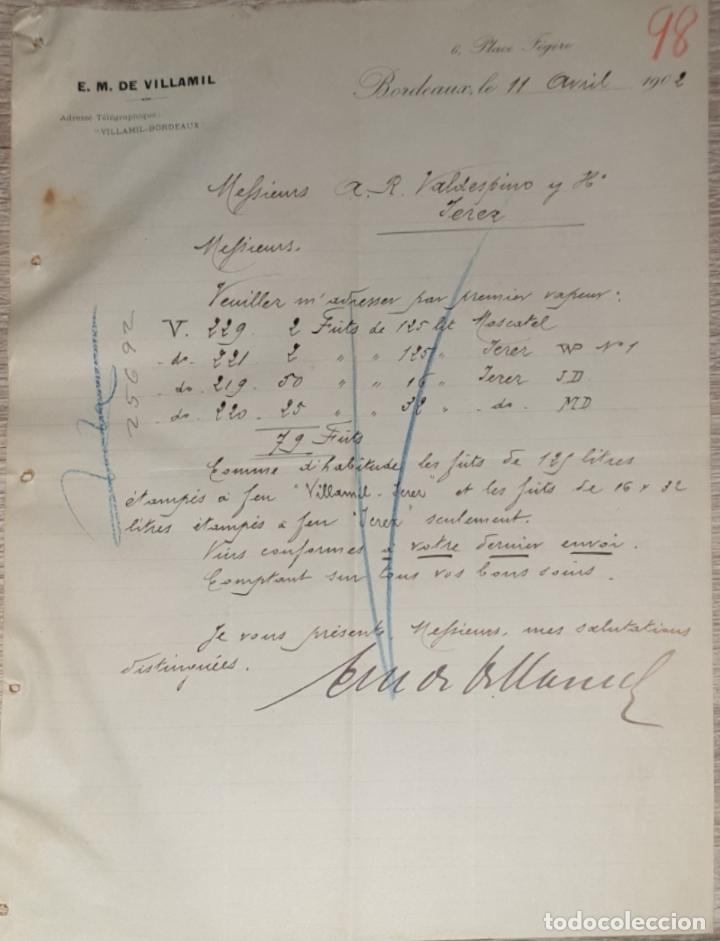 98
6, Place Fégère
E. M. DE VILLAMIL
Bordeaux, le 11 Avril 1902
Adresse Télégraphique:
"VILLAMIL-BORDEAUX"
Messieurs A. R. Valdespino y Hº
Jerez
Messieurs.
Veuillez m'adresser par premier vapeur:
V. 229. 2 Fûts de 125 lit Moscatel
- do - 221 2 " " 125 " Jerez Nº 1
- do - 219. 50 " " 16 " Jerez S.D.
- do - 220. 25 " " 32 " - do - MD
79 Fûts
Comme d'habitude les fûts de 125 litres
étampés à feu "Villamil-Jerez" et les fûts de 16 & 32
litres étampés à feu "Jerez" seulement.
Vins conformes à votre dernier envoi.
Comptant sur tous vos bons soins.
Je vous présente, Messieurs, mes salutations
distinguées.
EM de Villamil
25692
todocoleccion